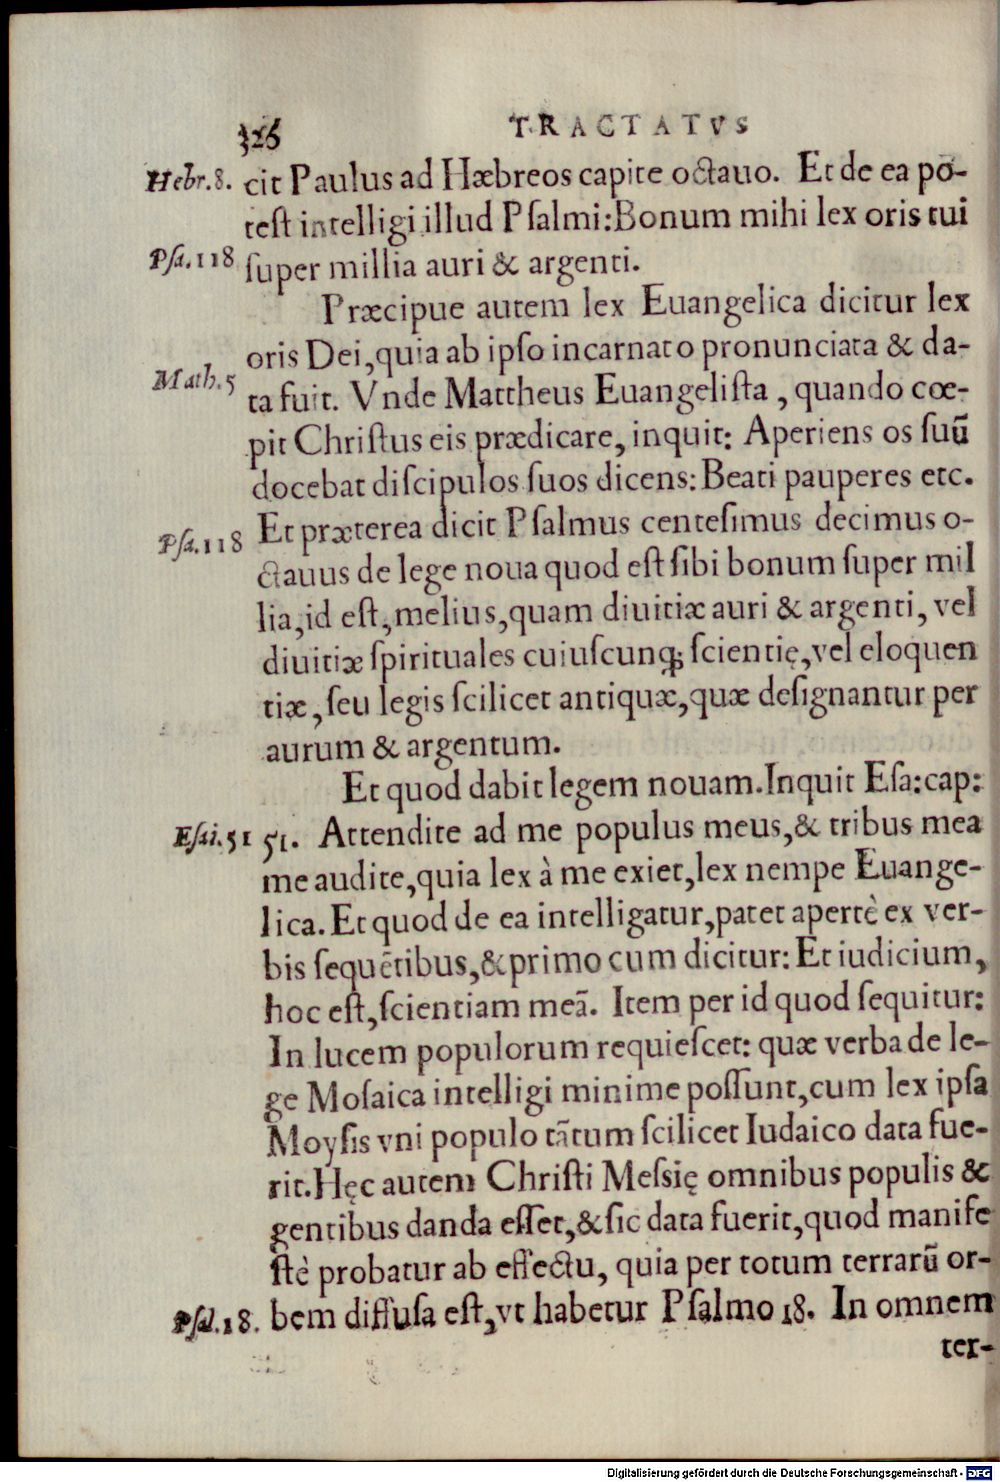 326 TRACTATVS
Hebr.8. cit Paulus ad Hæbreos capite octauo. Et de ea po-
test intelligi illud Psalmi: Bonum mihi lex oris tui
Psa.118 super millia auri & argenti.
Præcipue autem lex Euangelica dicitur lex
oris Dei, quia ab ipso incarnato pronunciata & da-
Math.5 ta fuit. Vnde Mattheus Euangelista, quando cœ-
pit Christus eis prædicare, inquit: Aperiens os suũ
docebat discipulos suos dicens: Beati pauperes etc.
Psa.118 Et præterea dicit Psalmus centesimus decimus o-
ctauus de lege noua quod est sibi bonum super mil
lia, id est, melius, quam diuitiæ auri & argenti, vel
diuitiæ spirituales cuiuscunq; scientię, vel eloquen
tiæ, seu legis scilicet antiquæ, quæ designantur per
aurum & argentum.
Et quod dabit legem nouam. Inquit Esa: cap:
Esai.51 51. Attendite ad me populus meus, & tribus mea
me audite, quia lex à me exiet, lex nempe Euange-
lica. Et quod de ea intelligatur, patet apertè ex ver-
bis sequẽtibus, & primo cum dicitur: Et iudicium,
hoc est, scientiam meã. Item per id quod sequitur:
In lucem populorum requiescet: quæ verba de le-
ge Mosaica intelligi minime possunt, cum lex ipsa
Moysis vni populo tãtum scilicet Iudaico data fue-
rit. Hęc autem Christi Messię omnibus populis &
gentibus danda esset, & sic data fuerit, quod manife
stè probatur ab effectu, quia per totum terrarũ or-
Psal.18. bem diffusa est, vt habetur Psalmo 18. In omnem
ter-
Digitalisierung gefördert durch die Deutsche Forschungsgemeinschaft - DFG